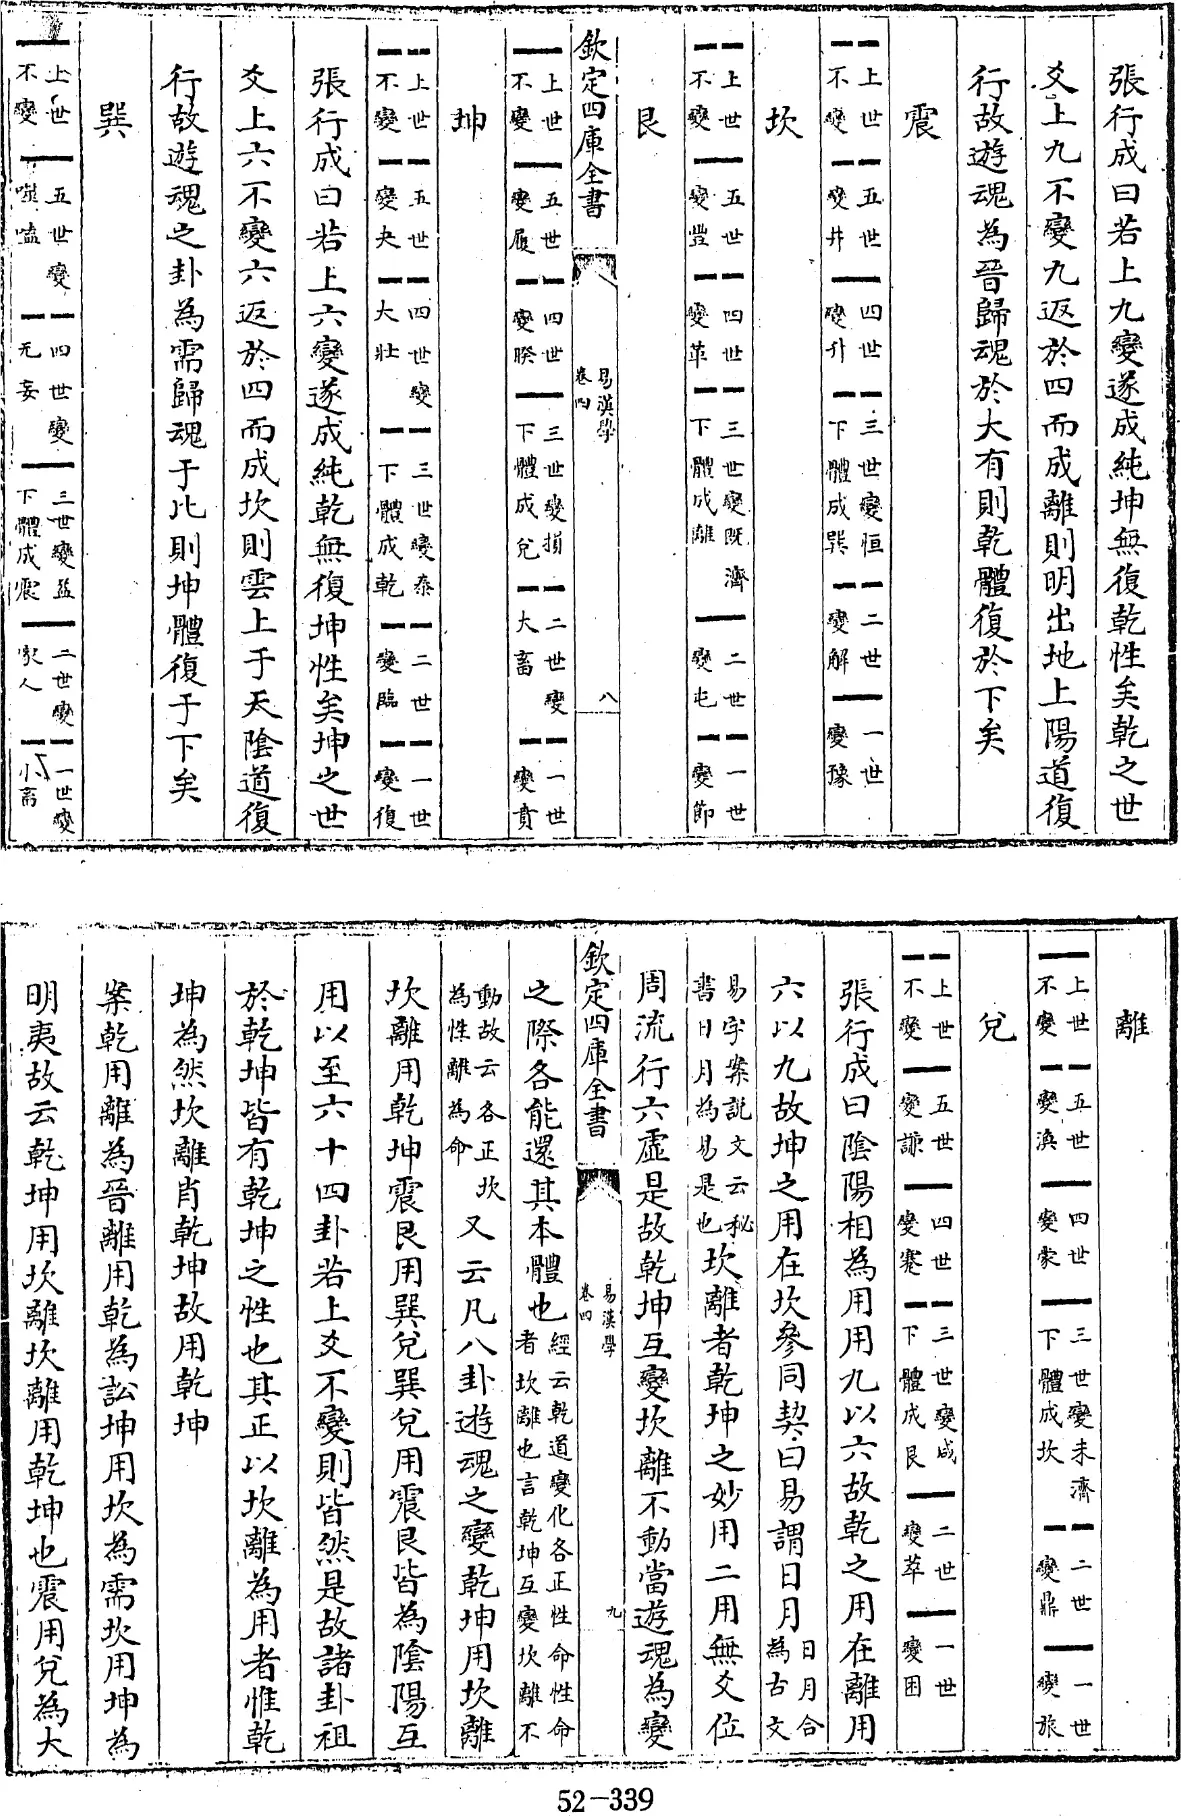 張行成曰若上九變遂成純坤無復乾性矣乾之世
爻上九不變九返於四而成離則明出地上陽道復
行故遊魂為晉歸魂於大有則乾體復於下矣
震
上世不變 五世變井 四世變升 三世變恒下體成巽 二世變解 一世變豫
坎
上世不變 五世變豐 四世變革 三世變既濟下體成離 二世變屯 一世變節
艮
欽定四庫全書 易漢學卷四 八
上世不變 五世變履 四世變睽 三世變損下體成兌 二世變大畜 一世變賁
坤
上世不變 五世變夬 四世變大壯 三世變泰下體成乾 二世變臨 一世變復
張行成曰若上六變遂成純乾無復坤性矣坤之世
爻上六不變六返於四而成坎則雲上于天陰道復
行故遊魂之卦為需歸魂于比則坤體復于下矣
巽
上世不變 五世變噬嗑 四世變无妄 三世變益下體成震 二世變家人 一世變小畜
離
上世不變 五世變渙 四世變蒙 三世變未濟下體成坎 二世變鼎 一世變旅
兌
上世不變 五世變謙 四世變蹇 三世變咸下體成艮 二世變萃 一世變困
張行成曰陰陽相為用用九以六故乾之用在離用
六以九故坤之用在坎參同契曰易謂日月日月合為古文
易字案說文云秘書日月為易是也坎離者乾坤之妙用二用無爻位
周流行六虛是故乾坤互變坎離不動當遊魂為變
欽定四庫全書 易漢學卷四 九
之際各能還其本體也經云乾道變化各正性命性命者坎離也言乾坤互變坎離不
動故云各正坎為性離為命又云凡八卦遊魂之變乾坤用坎離
坎離用乾坤震艮用巽兌巽兌用震艮皆為陰陽互
用以至六十四卦若上爻不變則皆然是故諸卦祖
於乾坤皆有乾坤之性也其正以坎離為用者惟乾
坤為然坎離肖乾坤故用乾坤
案乾用離為晉離用乾為訟坤用坎為需坎用坤為
明夷故云乾坤用坎離坎離用乾坤也震用兌為大
52-339